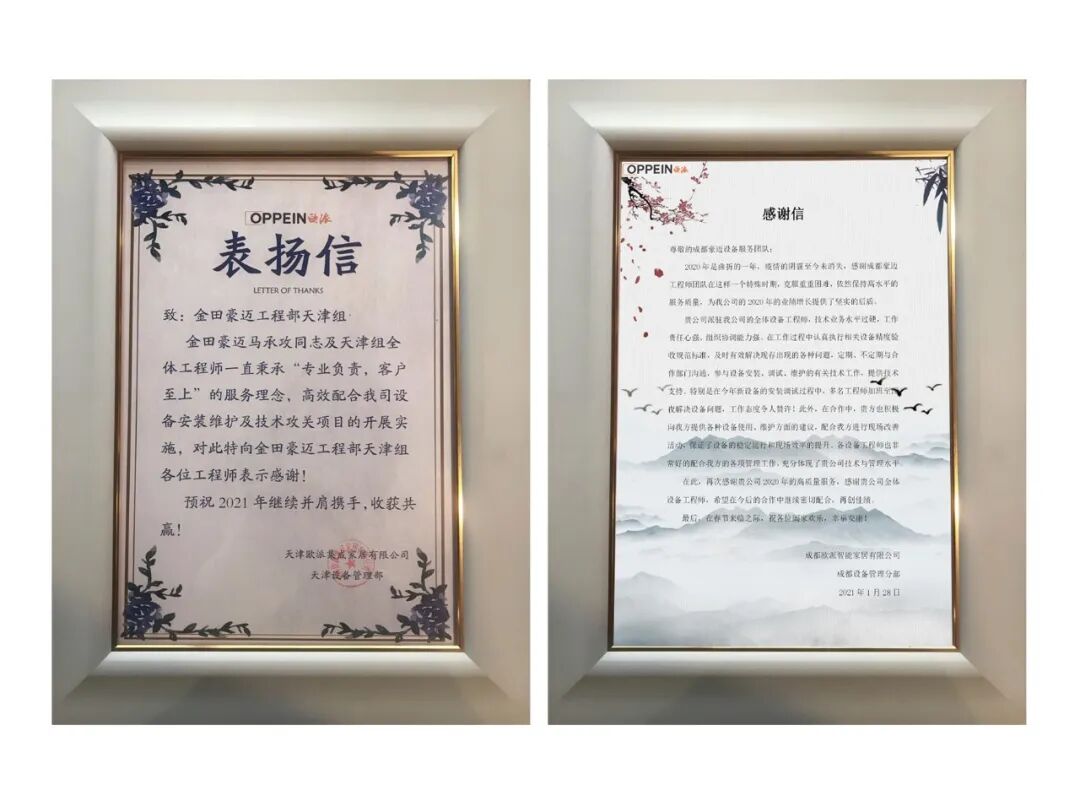 OPPEIN欧派
表扬信
LETTER OF THANKS
致：金田豪迈工程部天津组
金田豪迈马承攻同志及天津组全
体工程师一直秉承“专业负责，客户
至上”的服务理念，高效配合我司设
备安装维护及技术攻关项目的开展实
施，对此特向金田豪迈工程部天津组
各位工程师表示感谢！
预祝2021年继续并肩携手，收获共
赢！
天津欧派集成家居有限公司
天津设备管理部
OPPEIN欧派
感谢信
尊敬的成都豪迈设备服务团队：
2020年是曲折的一年，疫情的阴霾至今未消失，感谢成都豪迈
工程师团队在这样一个特殊时期，克服重重困难，依然保持高水平的
服务质量，为我公司的2020年的业绩增长提供了坚实的后盾。
贵公司派驻我公司的全体设备工程师，技术业务水平过硬，工作
责任心强，组织协调能力强。在工作过程中认真执行相关设备精度验
收规范标准，及时有效解决现存出现的各种问题，定期、不定期与合
作部门沟通，参与设备安装、调试、维护的有关技术工作，提供技术
支持。特别是在今年新设备的安装调试过程中，多名工程师加班至
夜解决设备问题，工作态度令人赞许！此外，在合作中，贵方也积极
向我方提供各种设备使用、维护方面的建议，配合我方进行现场改善
活动，保证了设备的稳定运行和现场效率的提升。各设备工程师也非
常好的配合我方的各项管理工作，充分体现了贵公司技术与管理水平
在此，再次感谢贵公司2020年的高质量服务，感谢贵公司全体
设备工程师，希望在今后的合作中继续密切配合，再创佳绩。
最后，在春节来临之际，祝各位阖家欢乐，幸福安康！
成都欧派智能家居有限公司
成都设备管理分部
2021年1月28日